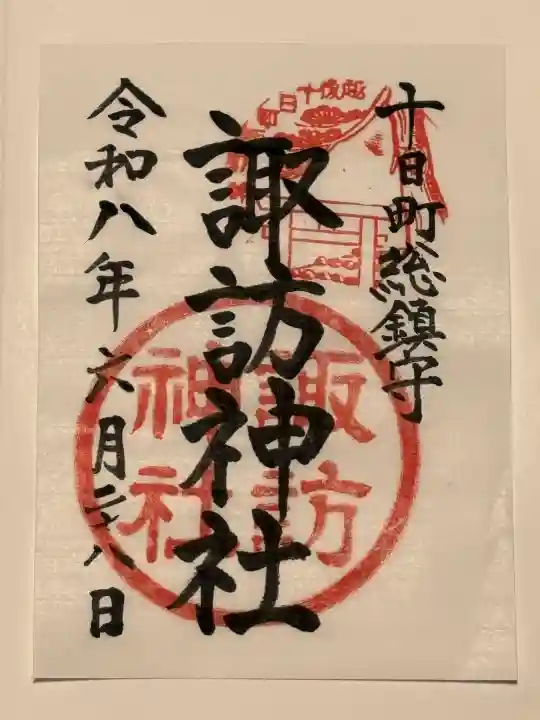 十日町総鎮守
諏訪神社
令和八年六月二十八日
諏訪
神社